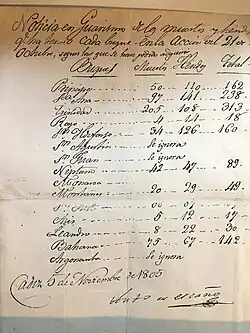 Noticia en quanto de los muertos y heridos
q.e ha tenido Cada buque en la Accion del 21 de
Octubre, segun las que se han podido adquirir
Buques Muertos Heridos Total
Principe 50 110 162
S.ta Ana 97 141 238
Trinidad 205 108 313
Rayo 4 14 18
S.n Ildefonso 34 126 160
S.n Agustin Se ignora
S.n Juan Se ignora
Neptuno 42 47 89
Monarca
Montañes 20 29 49
Asis 5 12 17
Leandro 8 22 30
Bahama 75 67 142
Argonauta Se ignora
Cadiz 5 de Noviembre de 1805
Antt.o de escaño